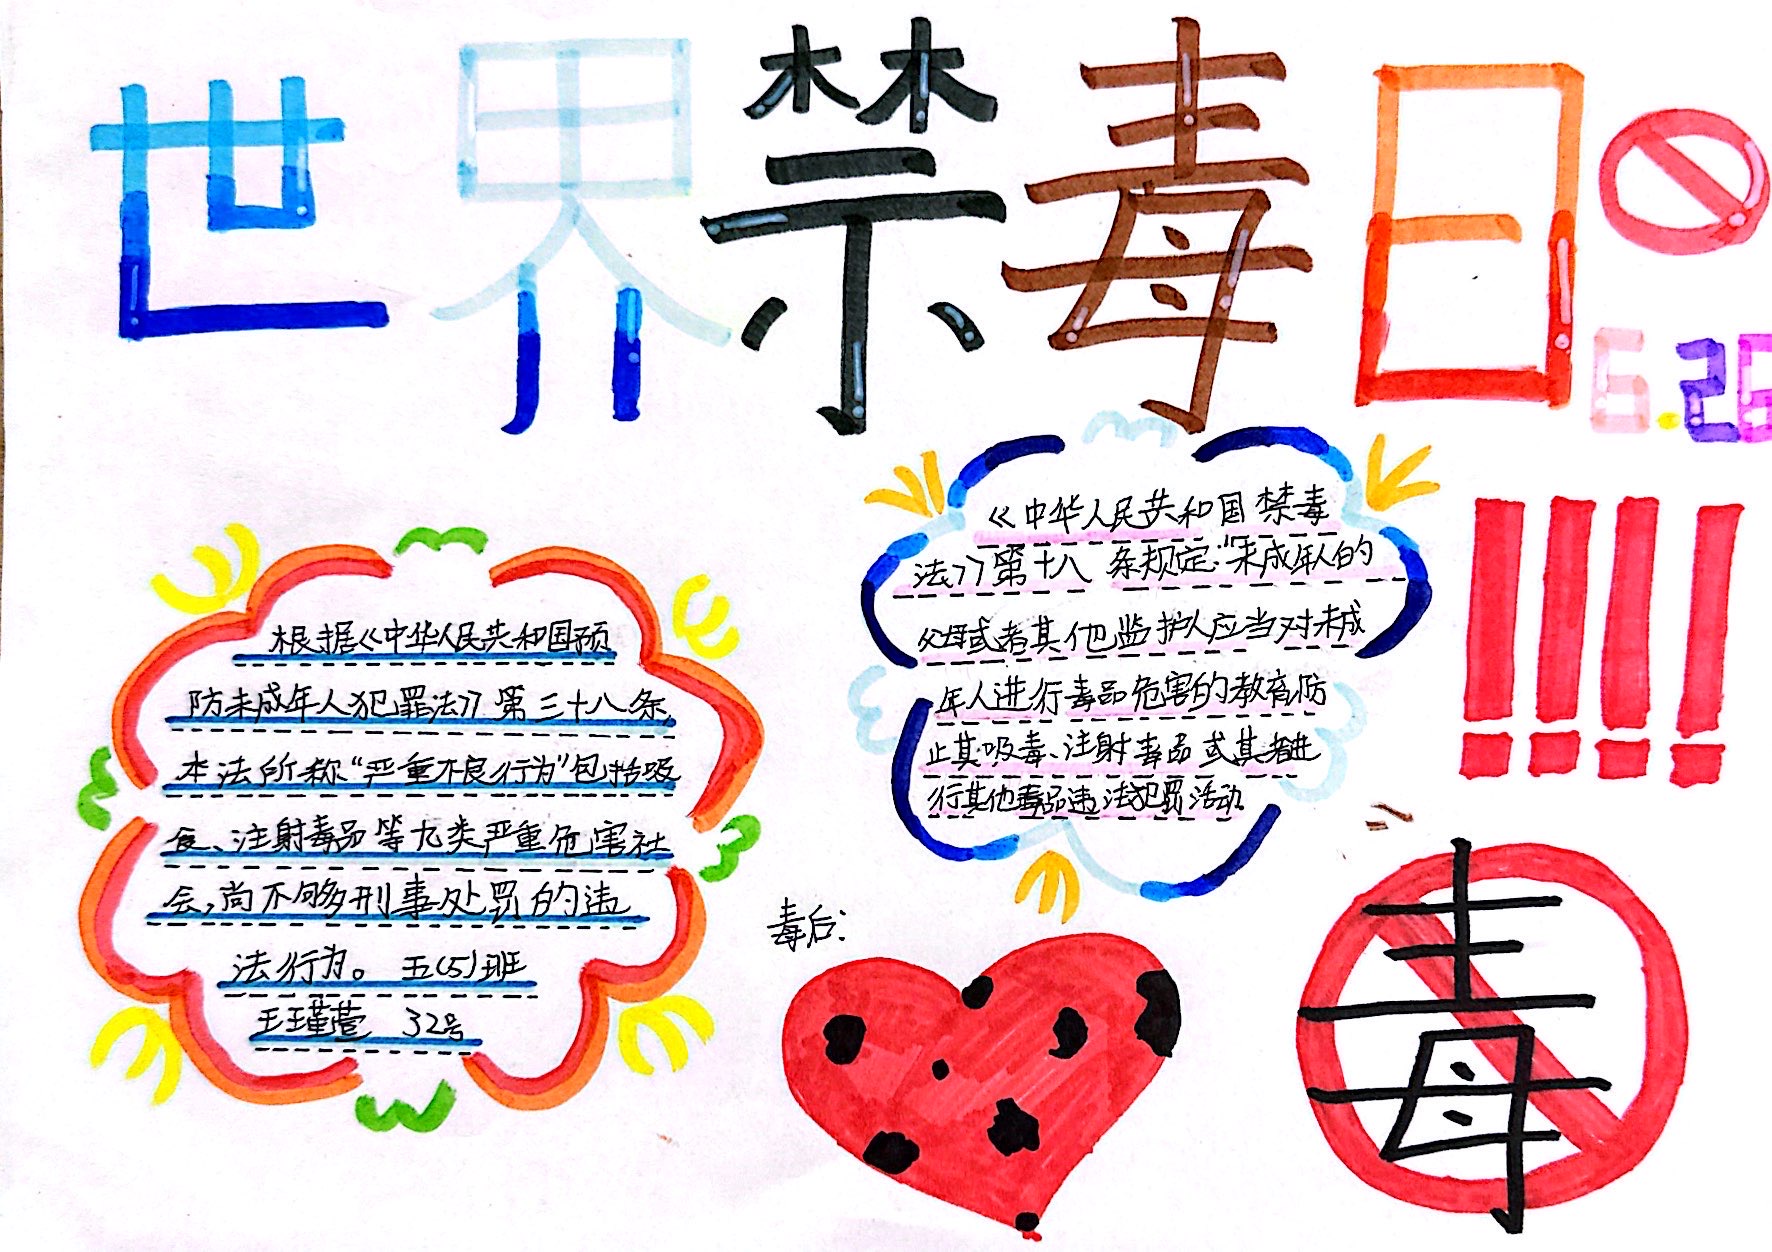 世界禁毒日
6.26
《中华人民共和国禁毒
法》第十八条规定:“未成年人的
父母或者其他监护人应当对未成
年人进行毒品危害的教育,防
止其吸毒、注射毒品或其者进
行其他毒品违法犯罪活动
!!!!
根据《中华人民共和国预
防未成年人犯罪法》第三十八条,
本法所称“严重不良行为”包括吸
食、注射毒品等九类严重危害社
会,尚不够刑事处罚的违
法行为。 五(5)班
王瑾萱 32号
毒后:
毒